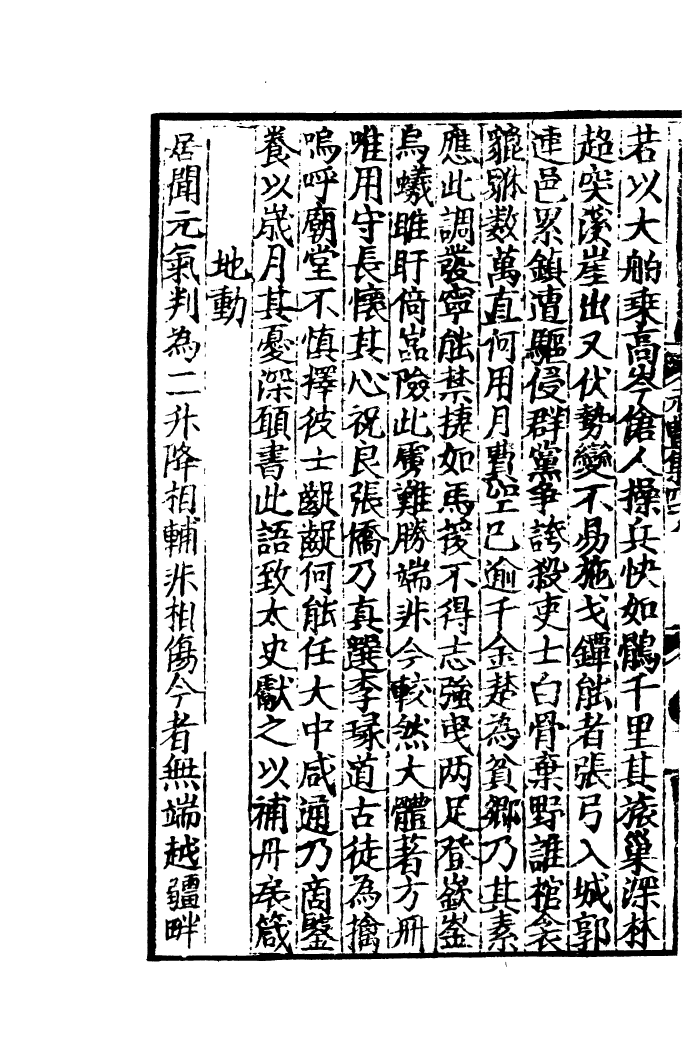 若以大舶乗高岑傖人操兵快如鶻千里其旅巢深林
超突溪崖出又伏勢變不易施戈鐔能者張弓入城郭
連邑累鎮遭驅侵群黨争誇殺吏士白骨棄野誰棺衾
貔貅数萬直何用月費空已逾千金楚為貧郷乃其素
應此調發寧能禁捷如馬筏不得志強曳两足登嶔崟
烏蟻雎盱倚嵓險此虜難勝端非今較然大體著方冊
唯用守長懷其心祝良張憍乃真選李琭道古徒為擒
嗚呼廟堂不慎擇彼士齪齪何能任大中咸通乃商鑒
養以歲月其憂深願書此語致太史獻之以補丹扆箴
地動
居聞元氣判為二升降相輔非相傷今者無端越疆畔